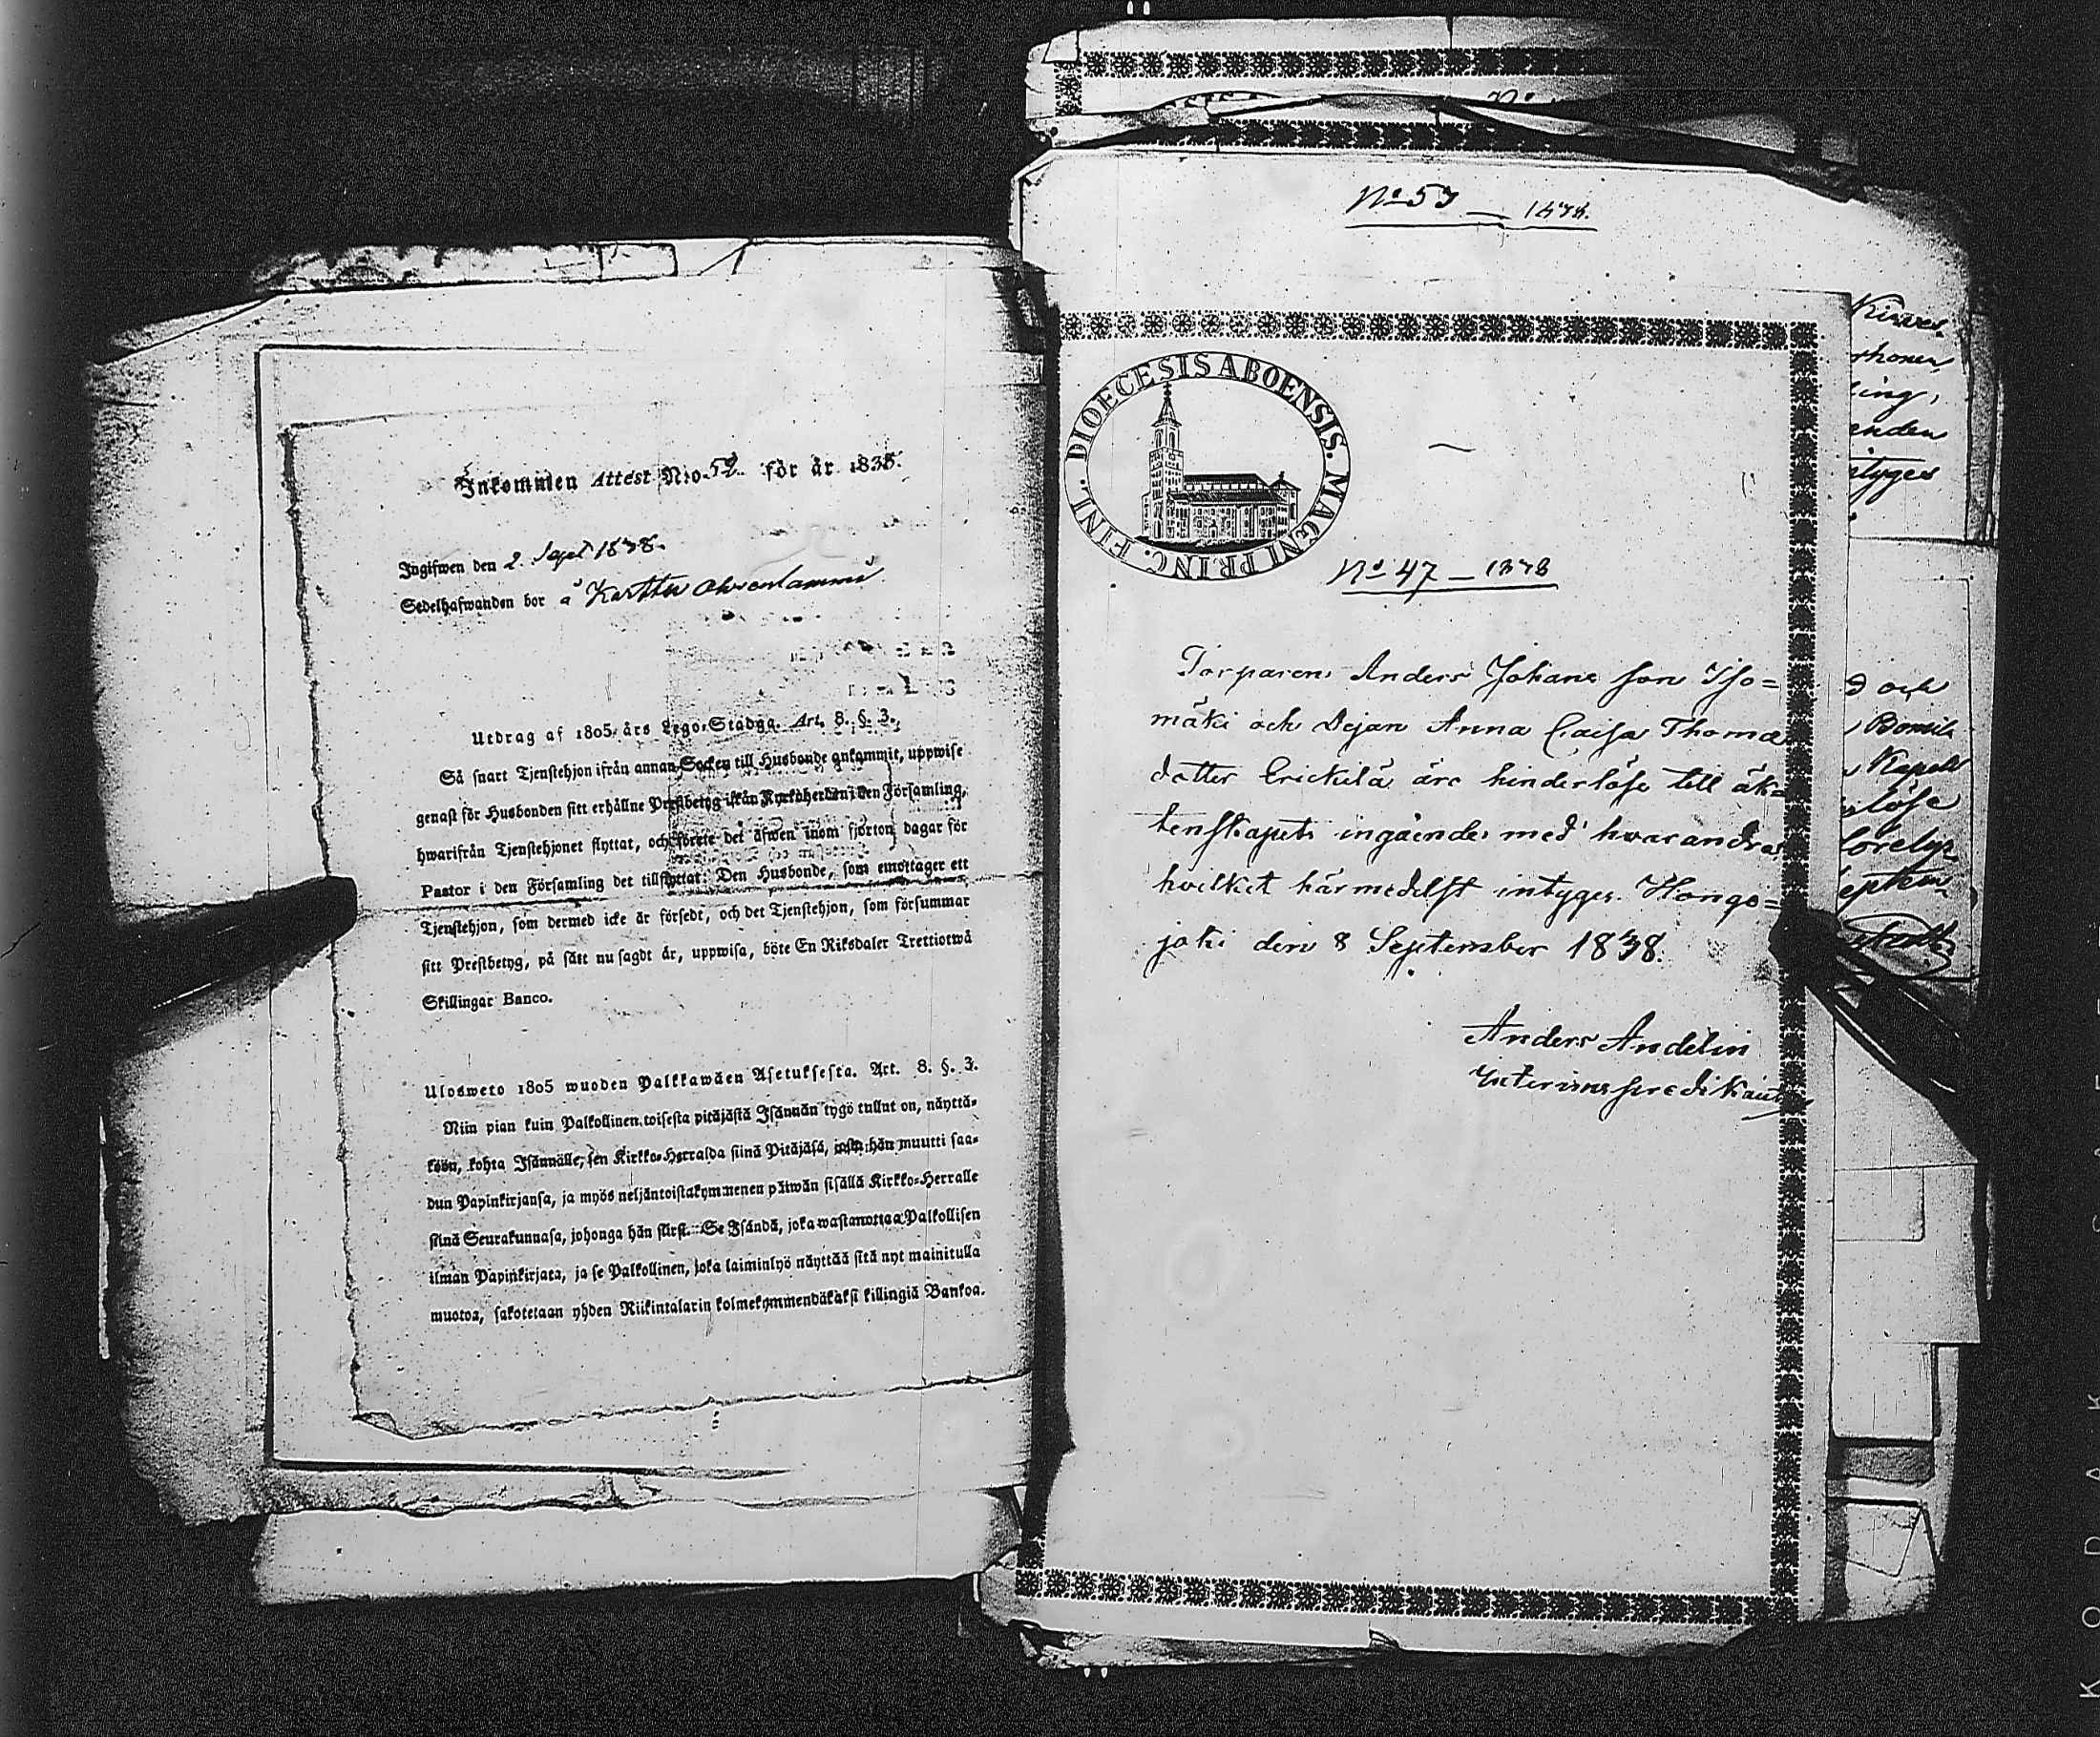 Inkommen Attest N:o 52 för år 1838.
Ingifwen den 2. Sept 1838.
Sedelhafwanden bor å
Utdrag af 1805 års Lego-Stadga. Art. 8. §. 3.
Så snart Tjenstehjon ifrån annan Socken till Husbonde ankommit, uppwise
genast för Husbonden sitt erhållne Prestbetyg ifrån Kyrkoherden i den Församling,
hwarifrån Tjenstehjonet flyttat, och förete det äfwen inom fjorton dagar för
Pastor i den Församling det tillflyttat. Den Husbonde, som emottager ett
Tjenstehjon, som dermed icke är försedt, och det Tjenstehjon, som försummar
sitt Prestbetyg, på sätt nu sagdt är, uppwisa, böte En Riksdaler Trettiotwå
Skillingar Banco.
Ulosweto 1805 wuoden Palkkawäen Asetuksesta. Art. 8. §. 3.
Niin pian kuin Palkollinen toisesta pitäjästä Isännän tygö tullut on, näyttä-
köön, kohta Isännälle, sen Kirkko-Herralda siinä Pitäjäsä, josta hän muutti saa-
dun Papinkirjansa, ja myös neljäntoistakymmenen päiwän sisällä Kirkko-Herralle
siinä Seurakunnasa, johonga hän siirst. Se Isändä, joka wastanottaa Palkollisen
ilman Papinkirjata, ja se Palkollinen, joka laiminlyö näyttää sitä nyt mainitulla
muotoa, sakotetaan yhden Riikintalarin kolmekymmendäkaksi killingiä Bankoa.
No 57 — 1838.
DIOECESIS ABOENSIS. MAGNI PRINC. FINL.
No 47 — 1838
Torparen Anders Johans son Iso=
mäki och Pigan Anna Caisa Thomæ
dotter Erickilä äro hinderlöse till äk=
tenskapets ingående med hwarandra
hvilket härmedelst intyges. Hongo=
joki den 8 September 1838.
Anders Andelin
Interimspredikant
Kirves
rhonen
ing,
anden
intyges
d och
Bomila
Kapell
löse
eptem
KODAK